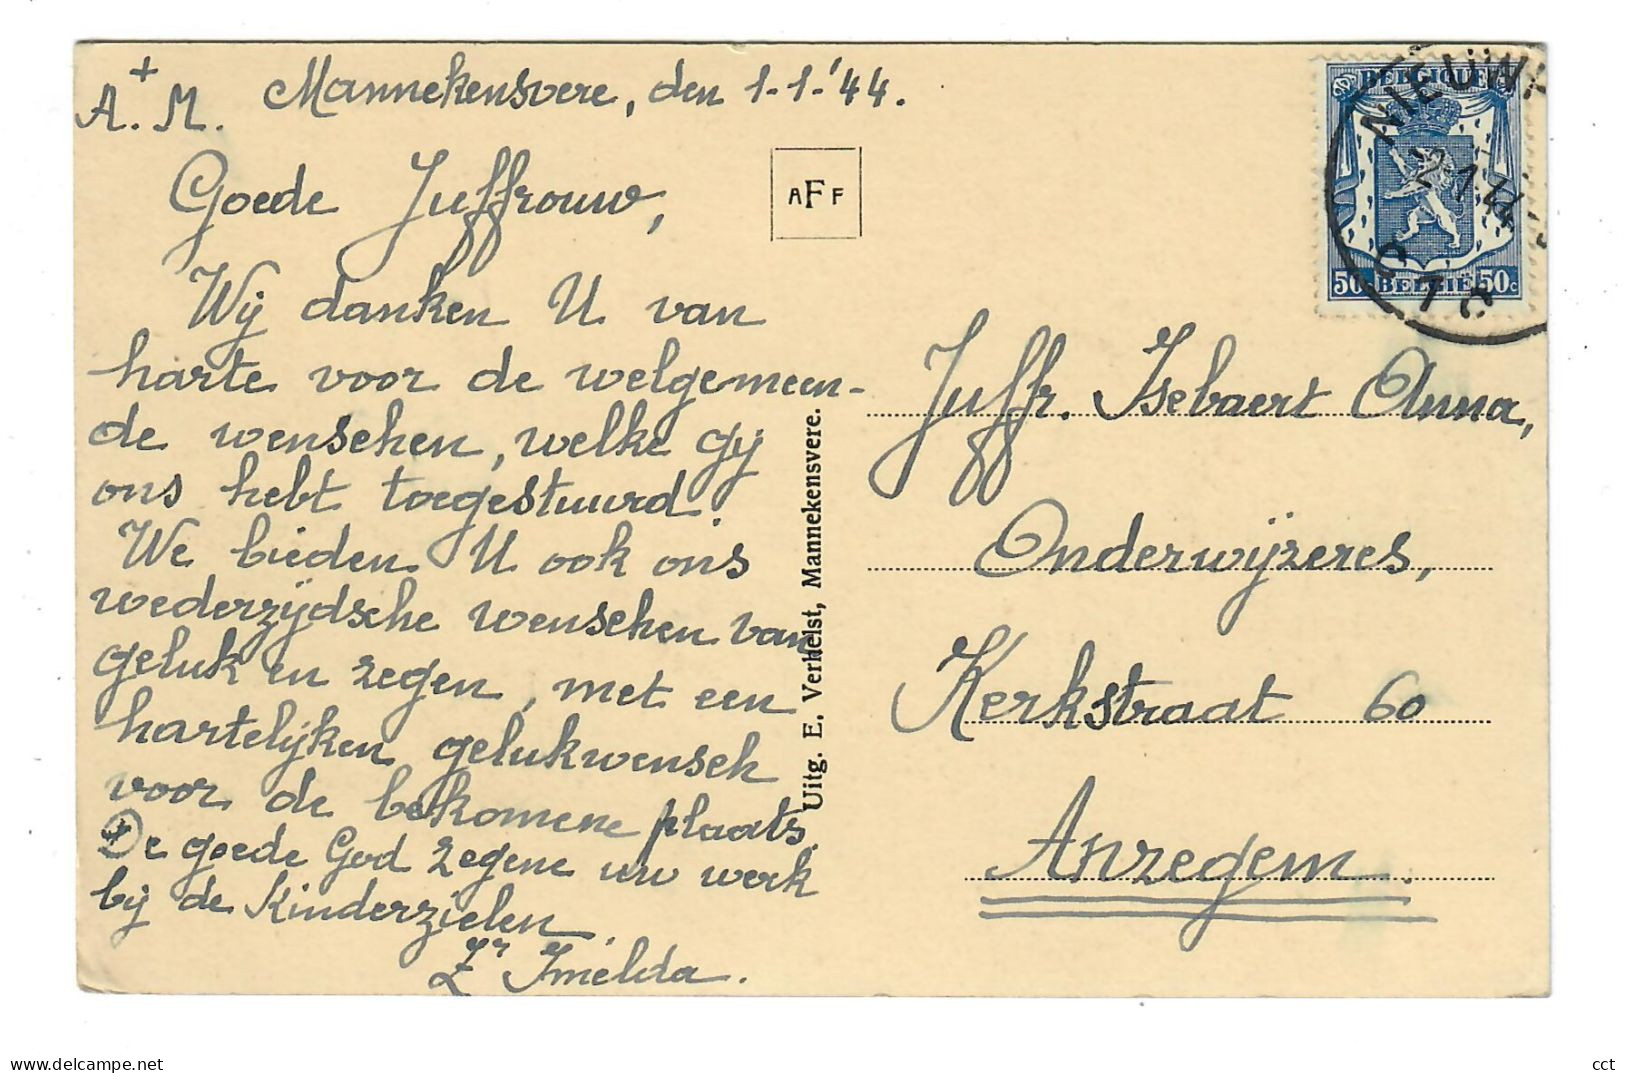 +
A. M.
Mannekensvere, den 1-1-'44.
Goede Juffrouw,
Wij danken U van
harte voor de welgemeen-
de wenschen, welke gij
ons hebt toegestuurd.
We bieden U ook ons
wederzijdsche wenschen van
geluk en zegen, met een
hartelijken gelukwensch
voor de bekomene plaats.
De goede God zegene uw werk
bij de Kinderzielen.
Zr Imelda.
AFF
Uitg. E. Verhelst, Mannekensvere.
BELGIQUE
50c BELGIË 50c
NIEUW
2.1.44
Juffr. Isebaert Anna,
Onderwijzeres,
Kerkstraat 60
Anzegem.
www.delcampe.net
cct